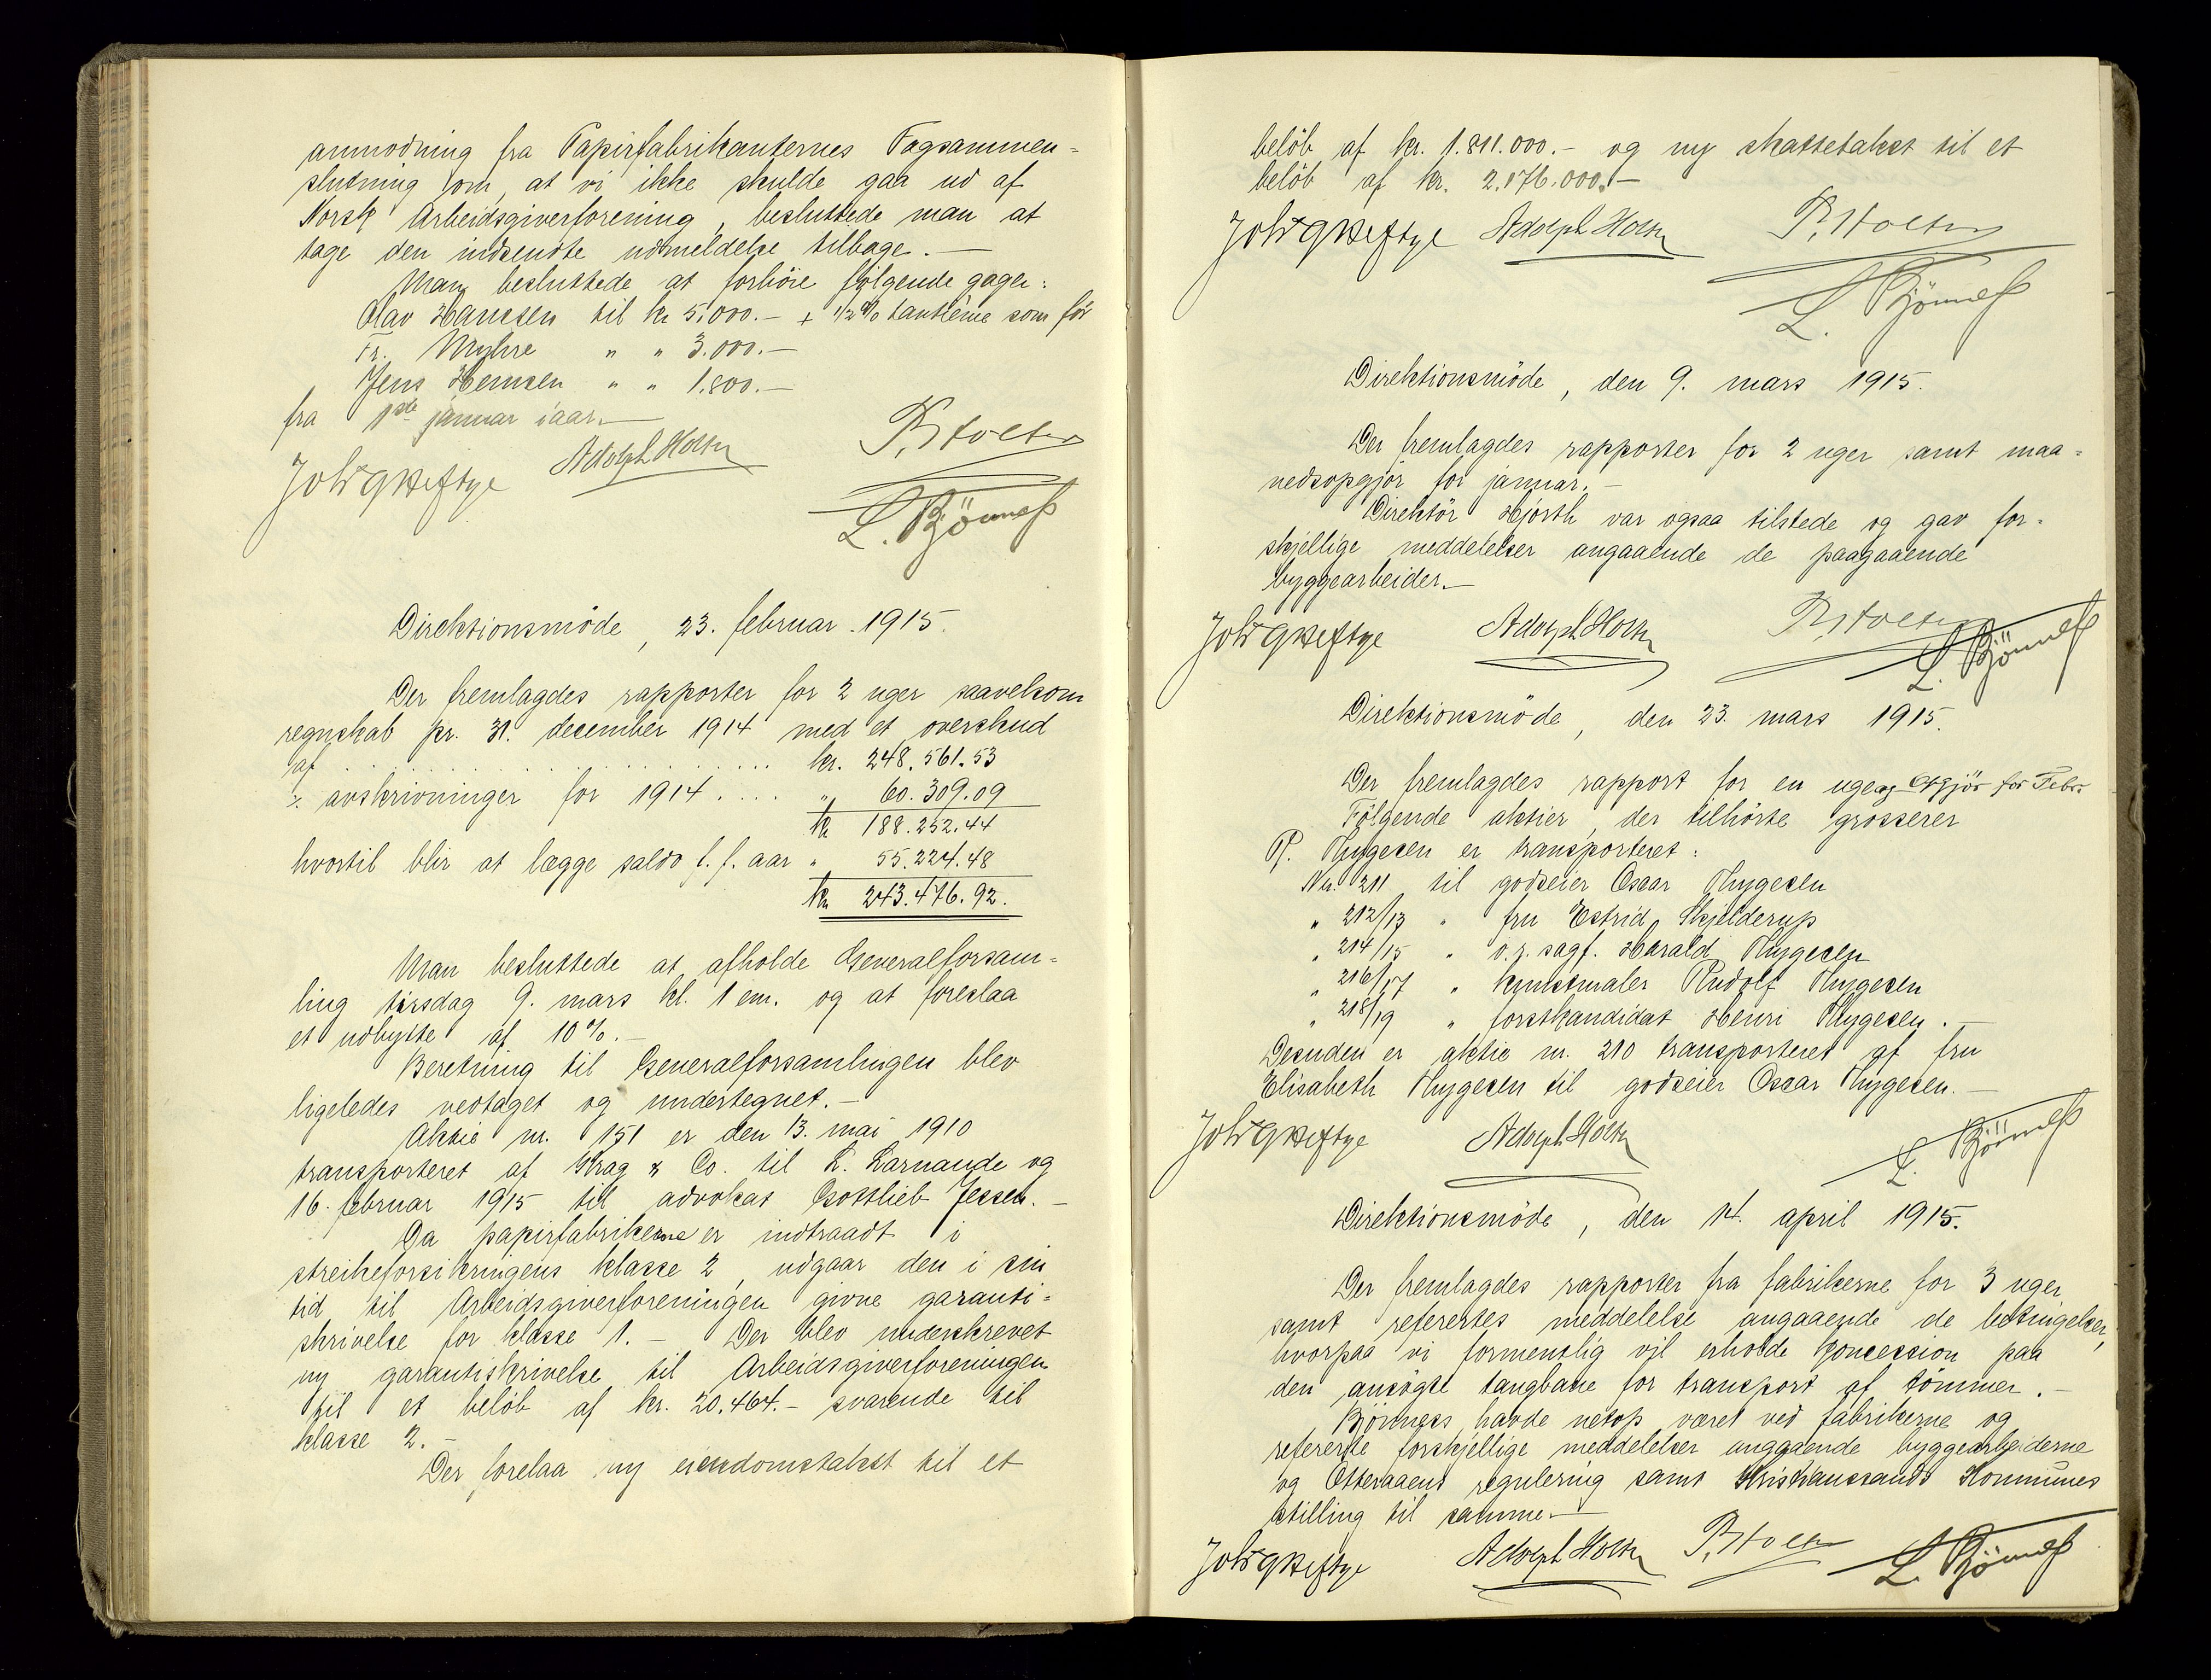 anmodning fra Papirfabrikanternes Fagsammen=
slutning om, at vi ikke skulde gaa ud af
Norsk Arbeidsgiverforening, besluttede man at
tage den indsendte udmeldelse tilbage.—
Man besluttede at forhöie følgende gager:
Olav Hanssen til kr 5.000.- + 1/2 % tantième som för
Fr. Myhre " " 3.000.—
Jens Hemsen " " 1.800.—
fra 1ste januar iaar.—
Joh G Heftye Adolph Holth P. Holter
L. Bjönness
Direktionsmöde, 23. februar 1915.
Der fremlagdes rapporter for 2 uger saavelsom
regnskab pr. 31. december 1914 med et overskud
af . . . . . . . . . . kr. 248.561.53
% avskrivninger for 1914 . . . . " 60.309.09
kr 188.252.44
hvortil blir at lægge saldo f. f. aar " 55.224.48
kr 243.476.92.
Man besluttede at afholde Generalforsam=
ling tirsdag 9. mars kl. 1 em. og at foreslaa
et udbytte af 10 %.—
Beretning til Generalforsamlingen blev
ligeledes vedtaget og undertegnet.—
Aktie nr. 151 er den 13. mai 1910
transporteret af Krag & Co. til L. Larnaude og
16. februar 1915 til advokat Gottlieb Jessen.—
Da papirfabrikerne er indtraadt i
streikeforsikringens klasse 2, udgaar den i sin
tid til Arbeidsgiverforeningen givne garanti=
skrivelse for klasse 1.— Der blev underskrevet
ny garantiskrivelse til Arbeidsgiverforeningen
til et belöb af kr. 20.464.- svarende til
klasse 2.—
Der forelaa ny eiendomstakst til et
belöb af kr. 1.811.000.- og ny skattetakst til et
belöb af kr. 2.176.000.—
Joh G Heftye Adolph Holth P. Holter
L. Bjönness
Direktionsmöde, den 9. mars 1915.
Der fremlagdes rapporter for 2 uger samt maa=
nedsopgjör for januar.—
Direktör Hjorth var ogsaa tilstede og gav for=
skjellige meddelelser angaaende de paagaaende
byggearbeider.—
Joh G Heftye Adolph Holth P. Holter
L. Bjönness
Direktionsmöde, den 23. mars 1915.
Der fremlagdes rapport for en uge og Opgjör for Febr.
Fölgende aktier, der tilhörte grosserer
P. Thygesen er transporteret:
Nr. 211 til godseier Oscar Thygesen
" 212/13 " fru Estrid Skjelderup
" 214/15 " o.r. sagf. Harald Thygesen
" 216/17 " kunstmaler Rudolf Thygesen
" 218/19 " forstkandidat Henri Thygesen.—
Desuden er aktie nr. 210 transporteret af fru
Elisabeth Thygesen til godseier Oscar Thygesen.—
Joh G Heftye Adolph Holth L. Bjönness
Direktionsmöde, den 14. april 1915.
Der fremlagdes rapporter fra fabrikerne for 3 uger
samt referertes meddelelse angaaende de betingelser,
hvorpaa vi formentlig vil erholde koncession paa
den ansögte taugbane for transport af tömmer.—
Bjönness havde netop været ved fabrikerne og
refererte forskjellige meddelelser angaaende byggearbeiderne
og Otteraaens regulering samt Kristianssands Kommunes
stilling til samme.—
Joh G Heftye Adolph Holth P. Holter L. Bjönness